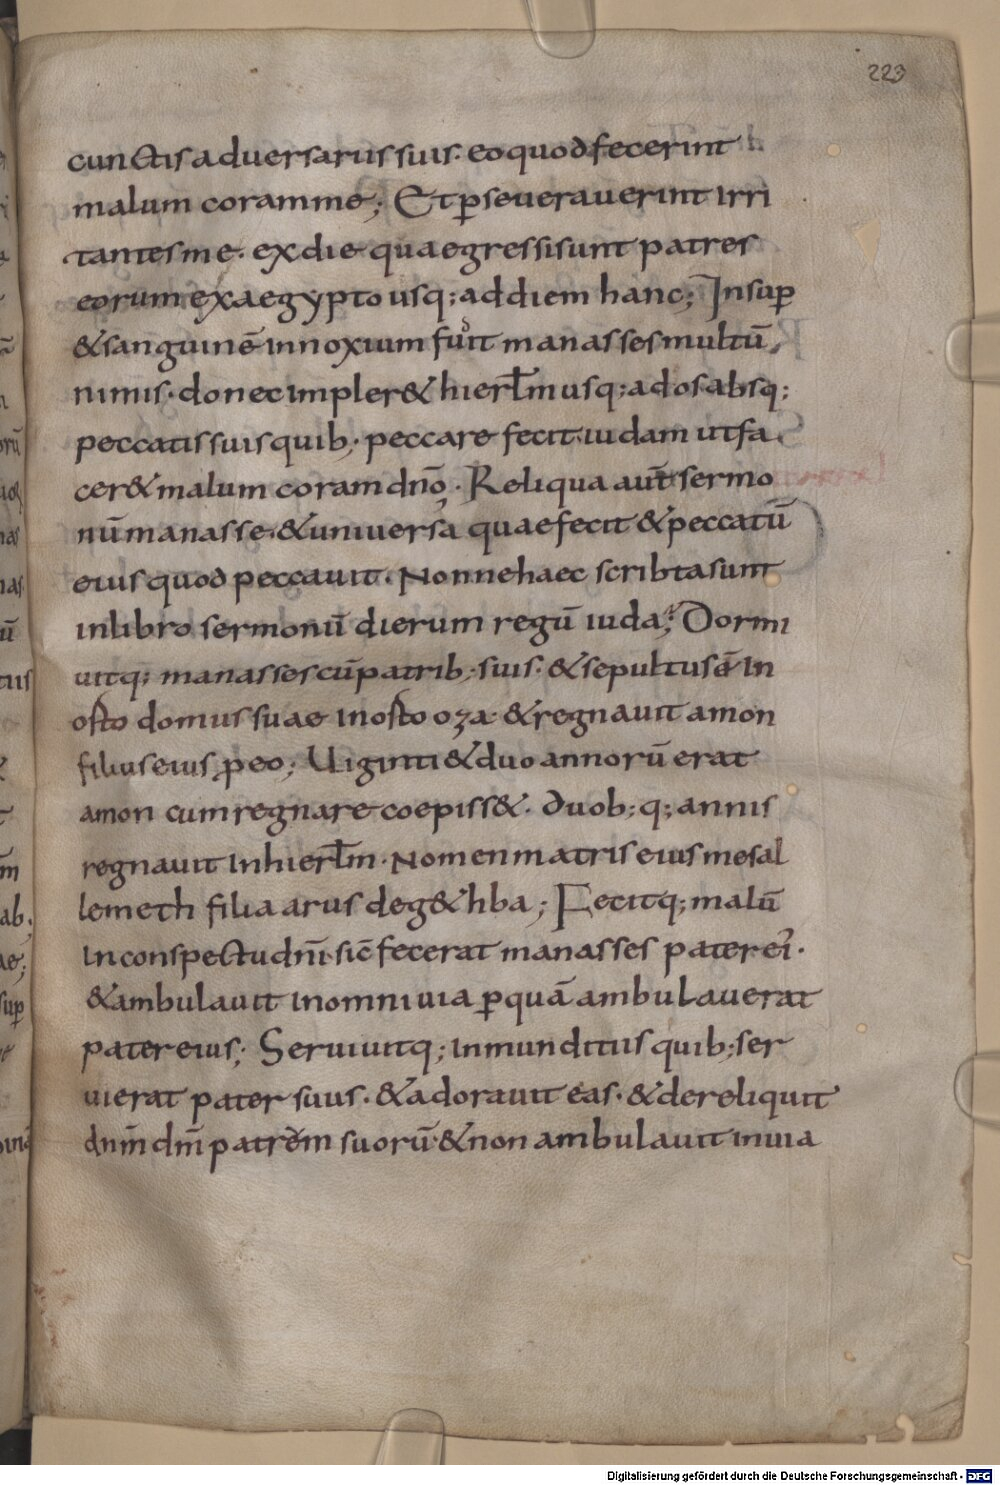 223
cunctis aduersariis suis· eo quod fecerint
malum coram me; Et ꝑseuerauerint irri
tantes me· ex die qua egressi sunt patres
eorum ex aegypto usq; ad diem hanc; Insuꝑ
& sanguinē innoxium fudit manasses multū
nimis· donec impler& hierłm usq; ad os absq;
peccatis suis quib; peccare fecit iudam ut fa
cer& malum coram dn̄o· Reliqua aut̄ sermo
nū manasse· & uniuersa quae fecit & peccatū
eius quod peccauit· Nonne haec scribta sunt
in libro sermonū dierum regū iuda; Dormi
uitq; manasses cū patrib; suis· & sepultus ē in
orto domus suae in orto oza· & regnauit amon
filius eius ꝓ eo; Uiginti & duo annorū erat
amon cum regnare coepiss&· duob; q; annis
regnauit in hierłm· Nomen matris eius mesal
lemeth filia arus deg& hba; Fecitq; malū
in conspectu dn̄i sic̄ fecerat manasses pater ei·
& ambulauit in omni uia ꝑ quā ambulauerat
pater eius; Seruiuitq; inmunditiis quib; ser
uierat pater suus· & adorauit eas· & dereliquit
dn̄m dm̄ patrem suorū & non ambulauit in uia
Digitalisierung gefördert durch die Deutsche Forschungsgemeinschaft - DFG